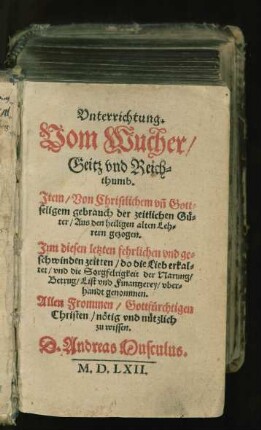 Vnterrichtung.
Vom Wucher/
Geitz vnd Reich-
thumb.
Item/ Von Christlichem vn̄ Gott-
seligem gebrauch der zeitlichen Gü-
ter/ Aus den heiligen alten Leh-
rern gezogen.
Inn diesen letzten fehrlichen vnd ge-
schwinden zeitten/ do die Lieb erkal-
tet/ vnd die Sorgfeltigkeit der Narung/
Betrug/ List vnd Finantzerey/ vber-
handt genommen.
Allen Frommen/ Gottfürchtigen
Christen/ nötig vnd nützlich
zu wissen.
D. Andreas Musculus.
M. D. LXII.